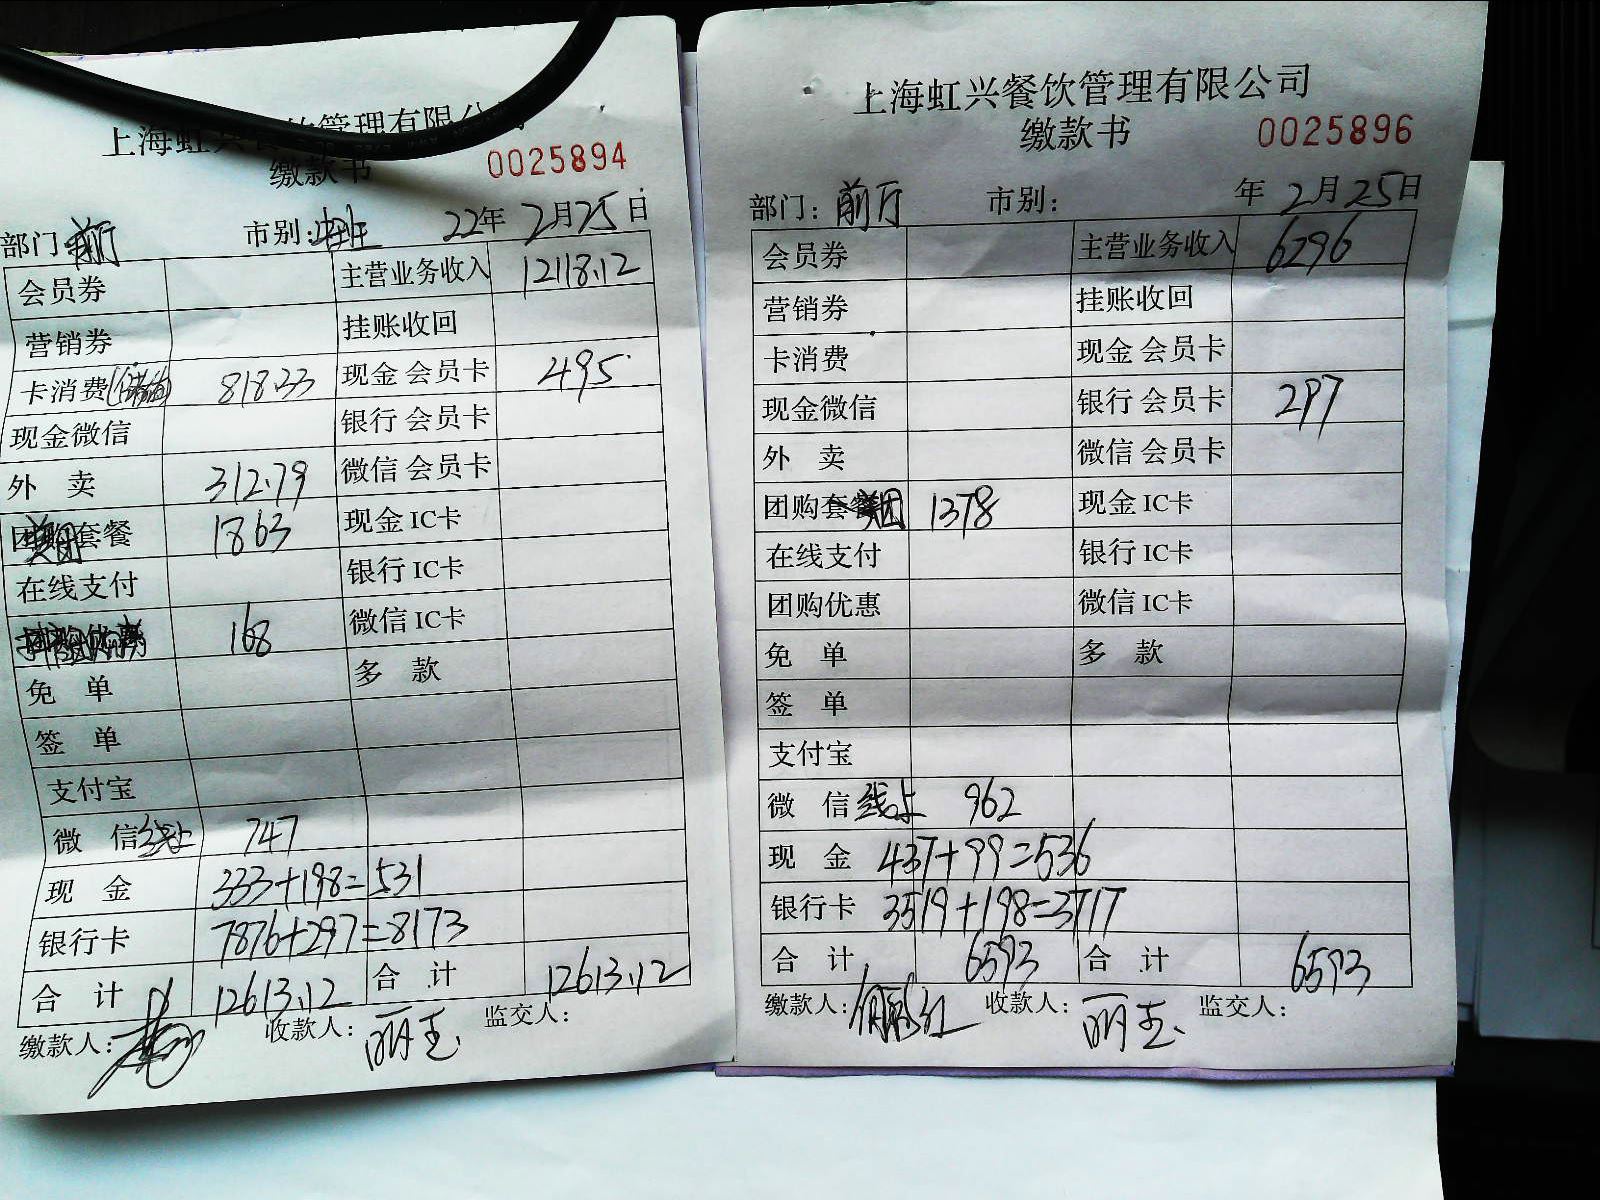 上海虹兴餐饮管理有限公司
缴款书 0025894
部门：前厅 市别：中班 22年 2月25日
会员券 主营业务收入 12118.12
营销券 挂账收回
卡消费 818.33 现金 会员卡 495
现金微信 银行 会员卡
外 卖 312.79 微信 会员卡
美团 套餐 1863 现金 IC卡
在线支付 银行 IC卡
168 微信 IC卡
免 单 多 款
签 单
支付宝
微 信 线上 747
现 金 333+198=531
银行卡 7876+297=8173
合 计 12613.12 合 计 12613.12
缴款人： 收款人： 丽 监交人：
上海虹兴餐饮管理有限公司
缴款书 0025896
部门：前厅 市别： 年 2月25日
会员券 主营业务收入 6296
营销券 挂账收回
卡消费 现金 会员卡
现金微信 银行 会员卡 297
外 卖 微信 会员卡
团购套餐 美团 1378 现金 IC卡
在线支付 银行 IC卡
团购优惠 微信 IC卡
免 单 多 款
签 单
支付宝
微 信 线上 962
现 金 437+99=536
银行卡 3519+198=3717
合 计 6593 合 计 6593
缴款人： 收款人： 丽 监交人：